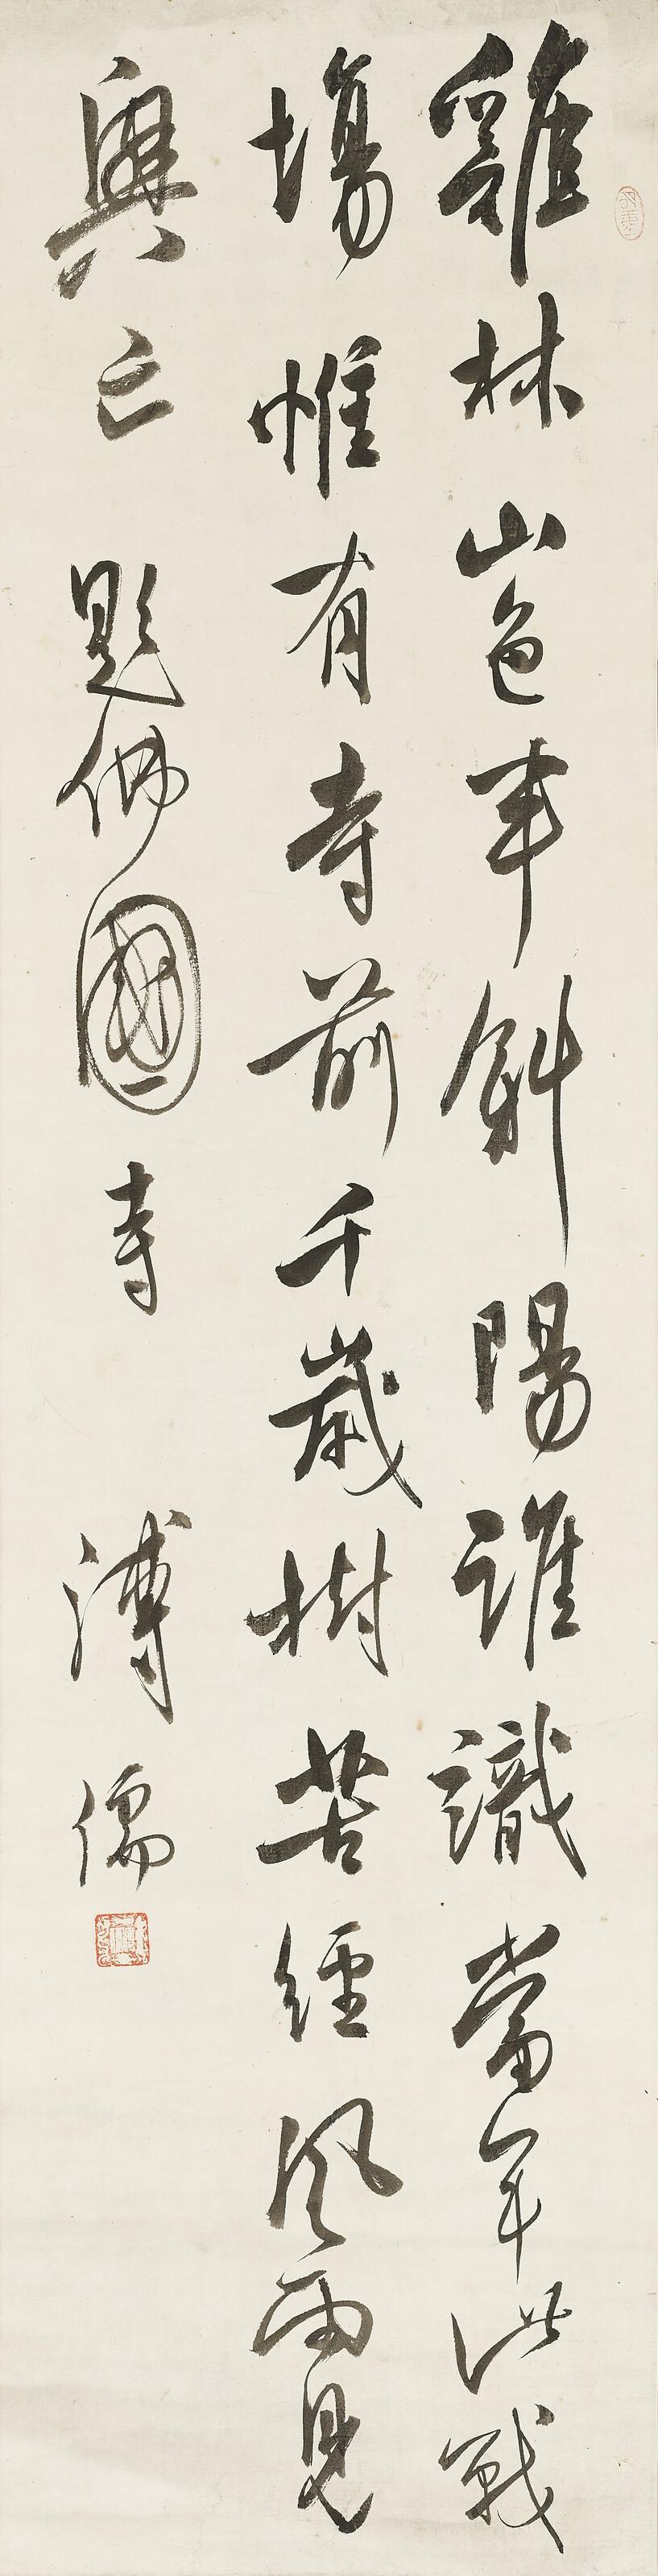 雞林山色半斜陽誰識當年此戰
場惟有寺前千歲樹苦經風雨見
興亡 題佛國寺 溥儒